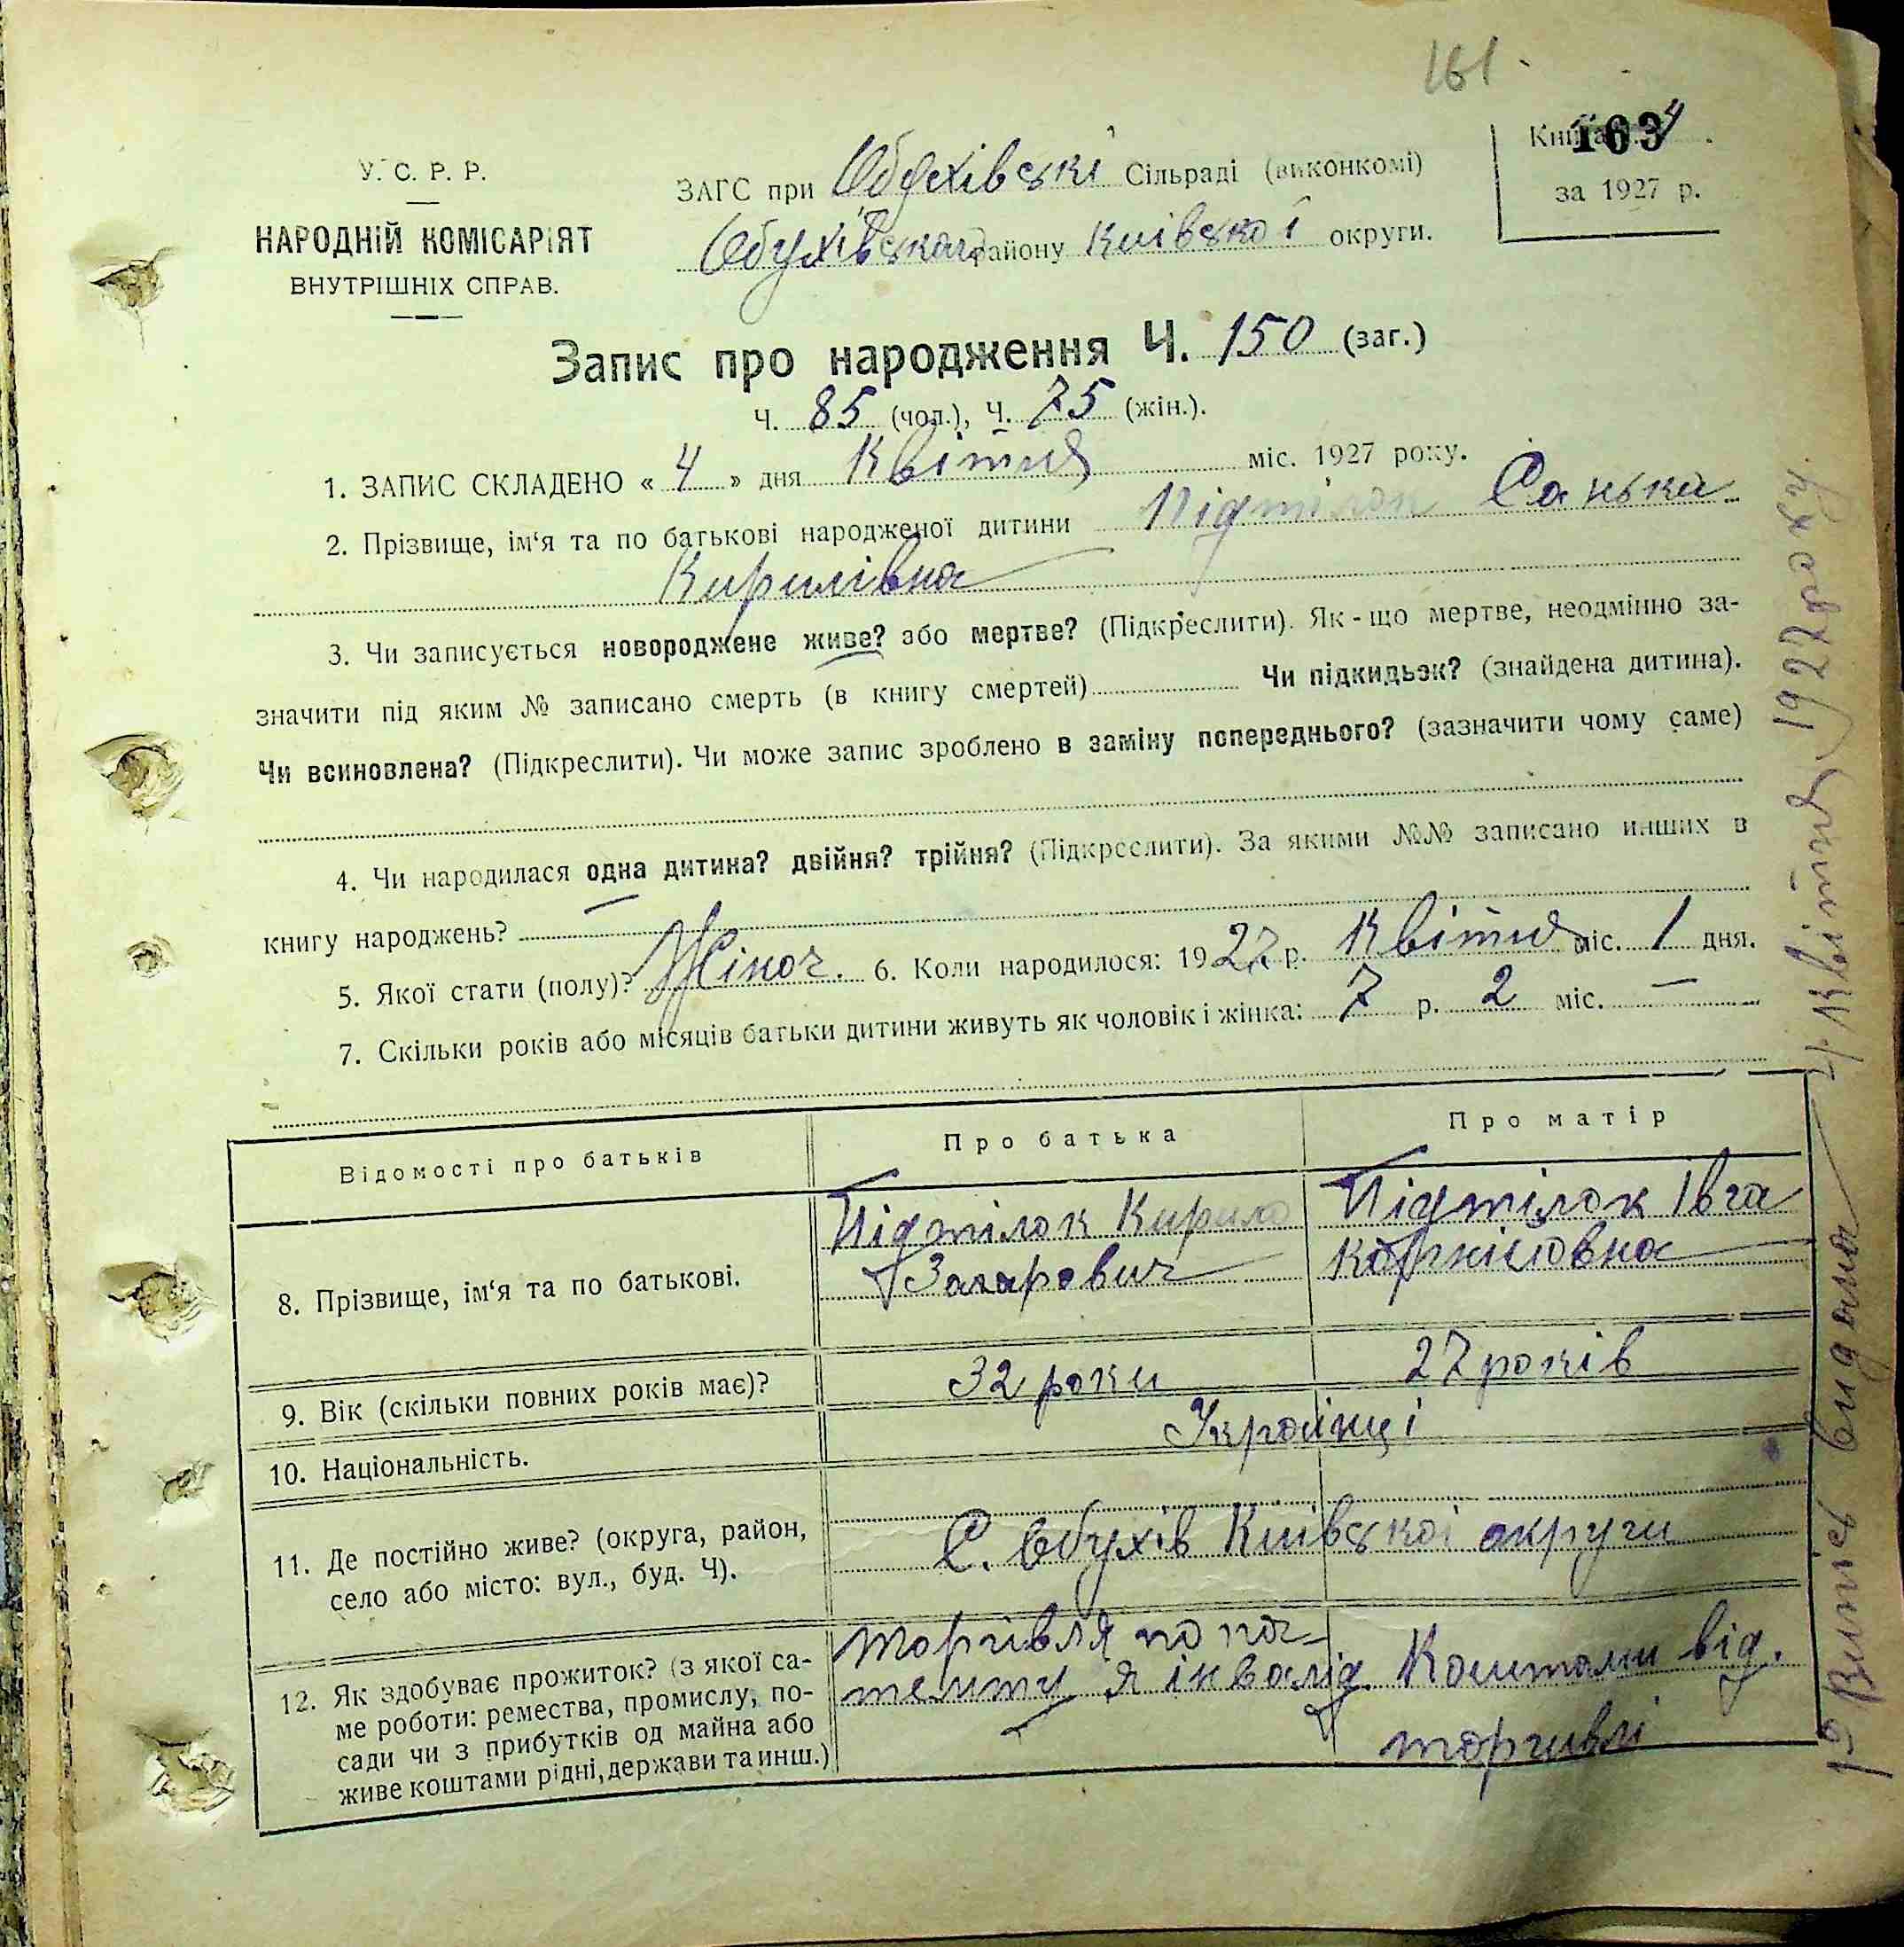 161
У. С. Р. Р.
НАРОДНІЙ КОМІСАРІЯТ
ВНУТРІШНІХ СПРАВ.
ЗАГС при Обухівські Сільраді (виконкомі)
Обухівського району Київської округи.
Книга 4
163
за 1927 р.
Запис про народження Ч. 150 (заг.)
Ч. 85 (чол.), Ч. 75 (жін.).
1. ЗАПИС СКЛАДЕНО « 4 » дня Квітня міс. 1927 року.
2. Прізвище, ім‘я та по батькові народженої дитини Підтілок Санька
Кирилівна
3. Чи записується новороджене живе? або мертве? (Підкреслити). Як-що мертве, неодмінно за-
значити під яким № записано смерть (в книгу смертей) Чи підкидьок? (знайдена дитина).
Чи всиновлена? (Підкреслити). Чи може запис зроблено в заміну попереднього? (зазначити чому саме)
4. Чи народилася одна дитина? двійня? трійня? (Підкреслити). За якими №№ записано инших в
книгу народжень?
5. Якої стати (полу)? Жіноч. 6. Коли народилося: 1927 р. Квітня міс. 1 дня.
7. Скільки років або місяців батьки дитини живуть як чоловік і жінка: 7 р. 2 міс. —
Відомості про батьків
Про батька
Про матір
8. Прізвище, ім‘я та по батькові.
Підтілок Кирило
Захарович
Підтілок Івга
Корніловна
9. Вік (скільки повних років має)?
32 роки
27 років
10. Національність.
Українці
11. Де постійно живе? (округа, район,
село або місто: вул., буд. Ч).
С. Обухів Київської округи
12. Як здобуває прожиток? (з якої са-
ме роботи: ремества, промислу, по-
сади чи з прибутків од майна або
живе коштами рідні, держави та инш.)
торгівля по па-
тенту я інвалід.
Коштами від.
торгивлі
Витпіс видано 4 квітня 1927 року.